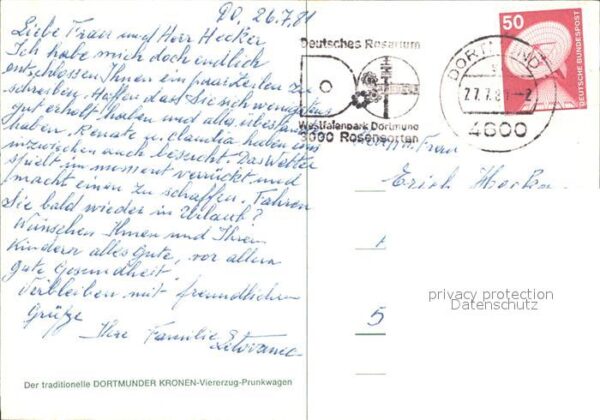 Do, 26.7.81
Liebe Frau und Herr Hecker
Ich habe mich doch endlich
entschlossen Ihnen ein paar Zeilen zu
schreiben. Hoffen das Sie sich wenigstens
gut erholt haben und alles überstanden
haben, Renate u. Claudia haben uns
inzwischen auch besucht. Das Wetter
spielt im moment verrückt und
macht einen zu schaffen. Fahren
Sie bald wieder in Urlaub?
Wünschen Ihnen und Ihren
Kindern alles Gute, vor allem
gute Gesundheit
Verbleiben mit freundlichen
Grüße
Ihre Familie
Der traditionelle DORTMUNDER KRONEN-Viererzug-Prunkwagen
Deutsches Rosarium
Westfalenpark Dortmund
3000 Rosensorten
DORTMUND
27.7.81-2
4600
50
DEUTSCHE BUNDESPOST
Frau
Erich Hecker
5
privacy protection
Datenschutz